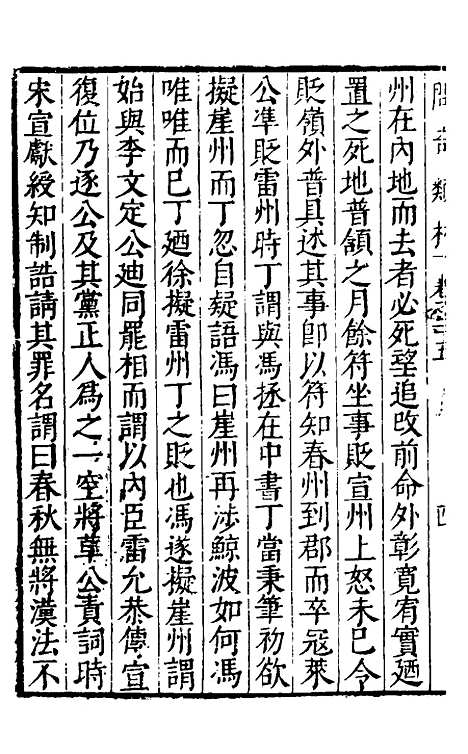 州在內地而去者必死朢追改前命外彰寬宥實廼
置之死地普頷之月餘符坐事貶宣州上怒未已令
貶嶺外普具述其事卽以符知春州到郡而卒寇萊
公準貶雷州時丁謂與馮拯在中書丁當秉筆初欲
擬崖州而丁忽自疑語馮曰崖州再涉鯨波如何馮
唯唯而已丁廼徐擬雷州丁之貶也馮遂擬崖州謂
始與李文定公廸同罷相而謂以內臣雷允恭傳宣
復位乃逐公及其黨正人爲之一空將草公責詞時
宋宣獻綬知制誥請其罪名謂曰春秋無將漢法不